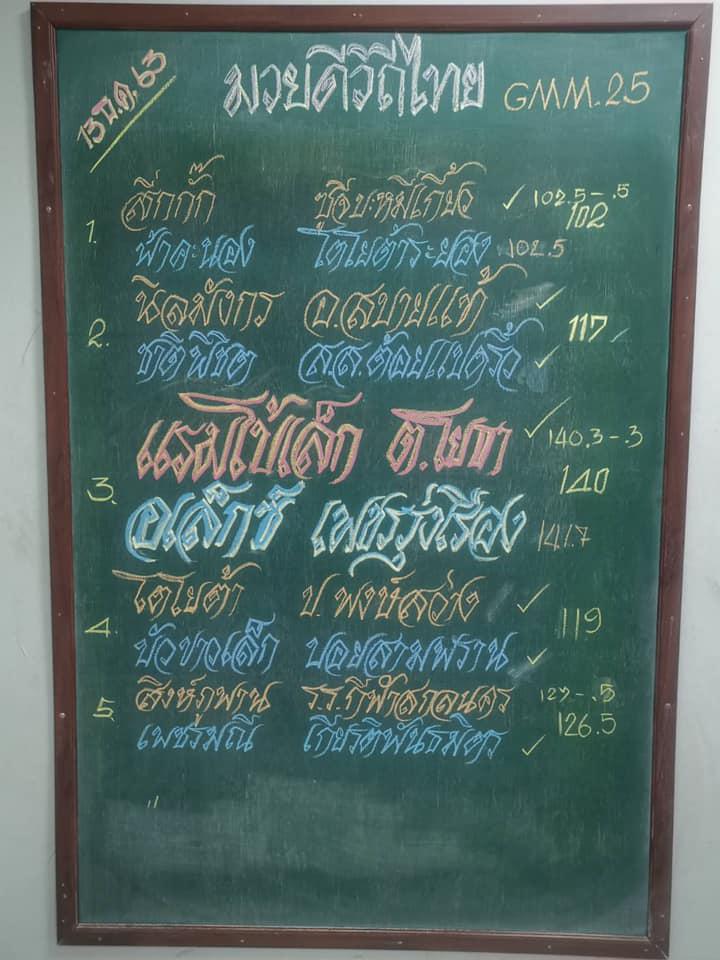 13 มิ.ค. 63
มวยดีวิถีไทย GMM.25
1.
ลีกกั๊ก ชูเจริญหมี่เกี๊ยว ✓ 102.5 - .5
102
ฟ้าคะนอง โตโยต้าระยอง 102.5
2.
นิลมังกร อ.สบายแท้ ✓
117
ชาติพิชิต ส.ส.ต้อยแปดริ้ว ✓
3.
แรมโบ้เล็ก ต.โยธา ✓ 140.3 - .3
140
อเล็กซ์ เพชรรุ่งเรือง 141.7
4.
โตโยต้า ป.พงษ์สว่าง ✓
119
บัวขาวเล็ก ปอยสามพราน ✓
5.
สิงห์ภูพาน รร.กีฬาสกลนคร 127 - .5
126.5
เพชรมณี เกียรติพันธมิตร ✓